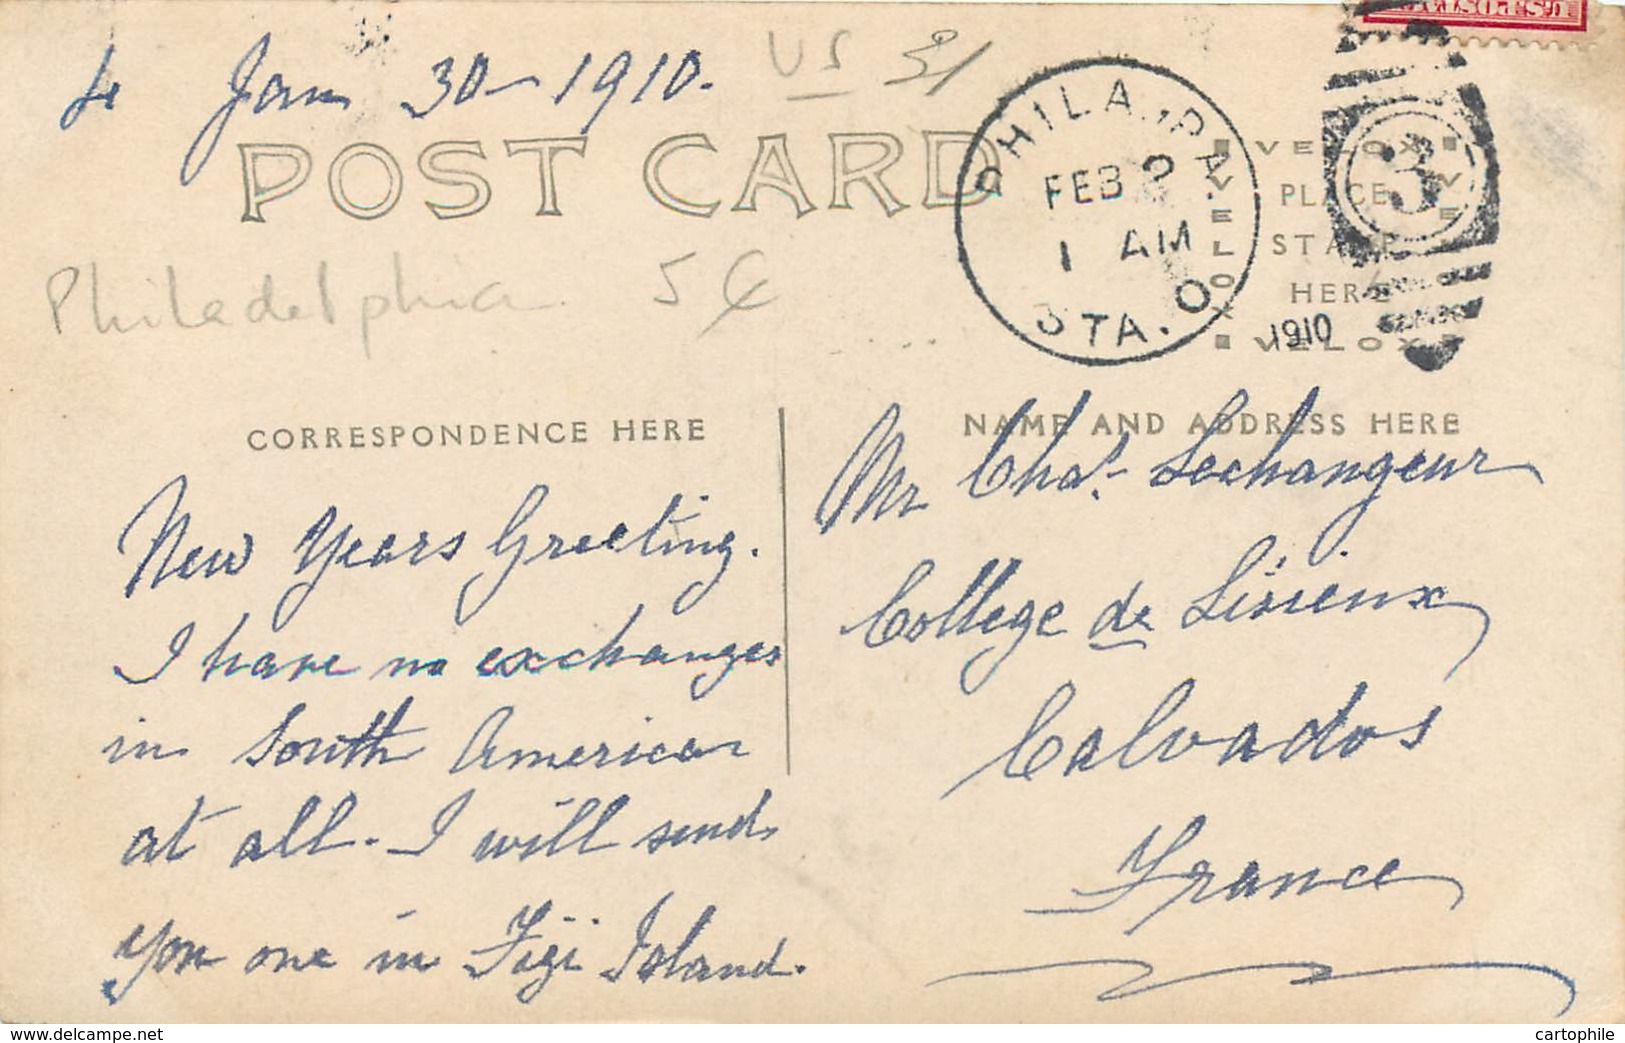 Jan 30 - 1910.
US 31
POST CARD
Philadelphia 5¢
PHILA., PA.
FEB 2
1 AM
STA. O
1910
3
VELOX
VELOX
VELOX
VELOX
PLACE
STAMP
HERE
CORRESPONDENCE HERE
New Years Greeting.
I have no exchanges
in South America
at all. I will send
you one in Figi Island.
NAME AND ADDRESS HERE
Mr Chas. Lechangeur
College de Lisieux
Calvados
France
www.delcampe.net
cartophile